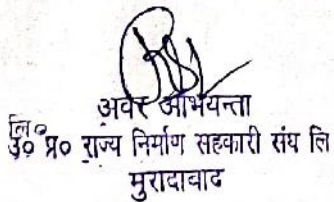 अवर अभियन्ता
लि०
उ० प्र० राज्य निर्माण सहकारी संघ लि
मुरादाबाद